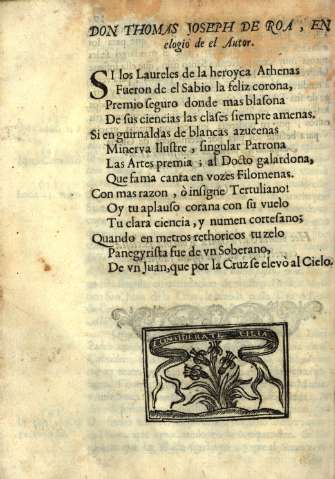 DON THOMAS JOSEPH DE ROA, EN
elogio de el Autor.
SI los Laureles de la heroyca Athenas
Fueron de el Sabio la feliz corona,
Premio seguro donde mas blasona
De sus ciencias las clases siempre amenas.
Si en guirnaldas de blancas azucenas
Minerva Ilustre, singular Patrona
Las Artes premia; al Docto galardona,
Que fama canta en vozes Filomenas.
Con mas razon, ò insigne Tertuliano!
Oy tu aplauso corana con su vuelo
Tu clara ciencia, y numen cortesano;
Quando en metros rethoricos tu zelo
Panegyrista fue de vn Soberano,
De vn Juan, que por la Cruz se elevò al Cielo.
CONSIDERATE LILIA